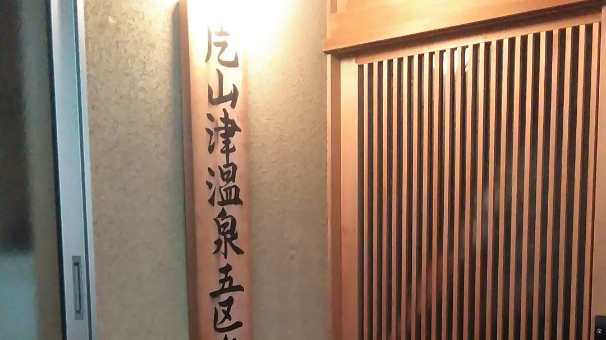 片山津温泉五区